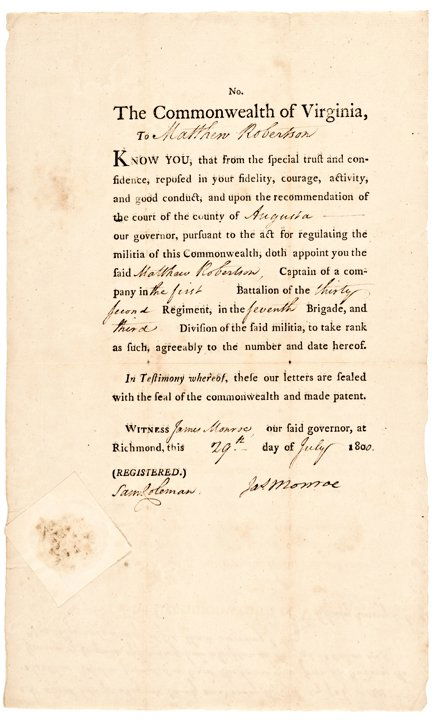 No.
The Commonwealth of Virginia,
To Matthew Robertson
KNOW YOU, that from the ſpecial truſt and con-
fidence, repoſed in your fidelity, courage, activity,
and good conduct, and upon the recommendation of
the court of the county of Auguſta
our governor, purſuant to the act for regulating the
militia of this Commonwealth, doth appoint you the
ſaid Matthew Robertson, Captain of a com-
pany in the firſt Battalion of the thirty
ſecond Regiment, in the ſeventh Brigade, and
third Diviſion of the ſaid militia, to take rank
as ſuch, agreeably to the number and date hereof.
In Teſtimony whereof, theſe our letters are ſealed
with the ſeal of the commonwealth and made patent.
WITNESS James Monroe, our ſaid governor, at
Richmond, this 29th day of July 1800.
(REGISTERED.)
Sam Coleman. Jas Monroe